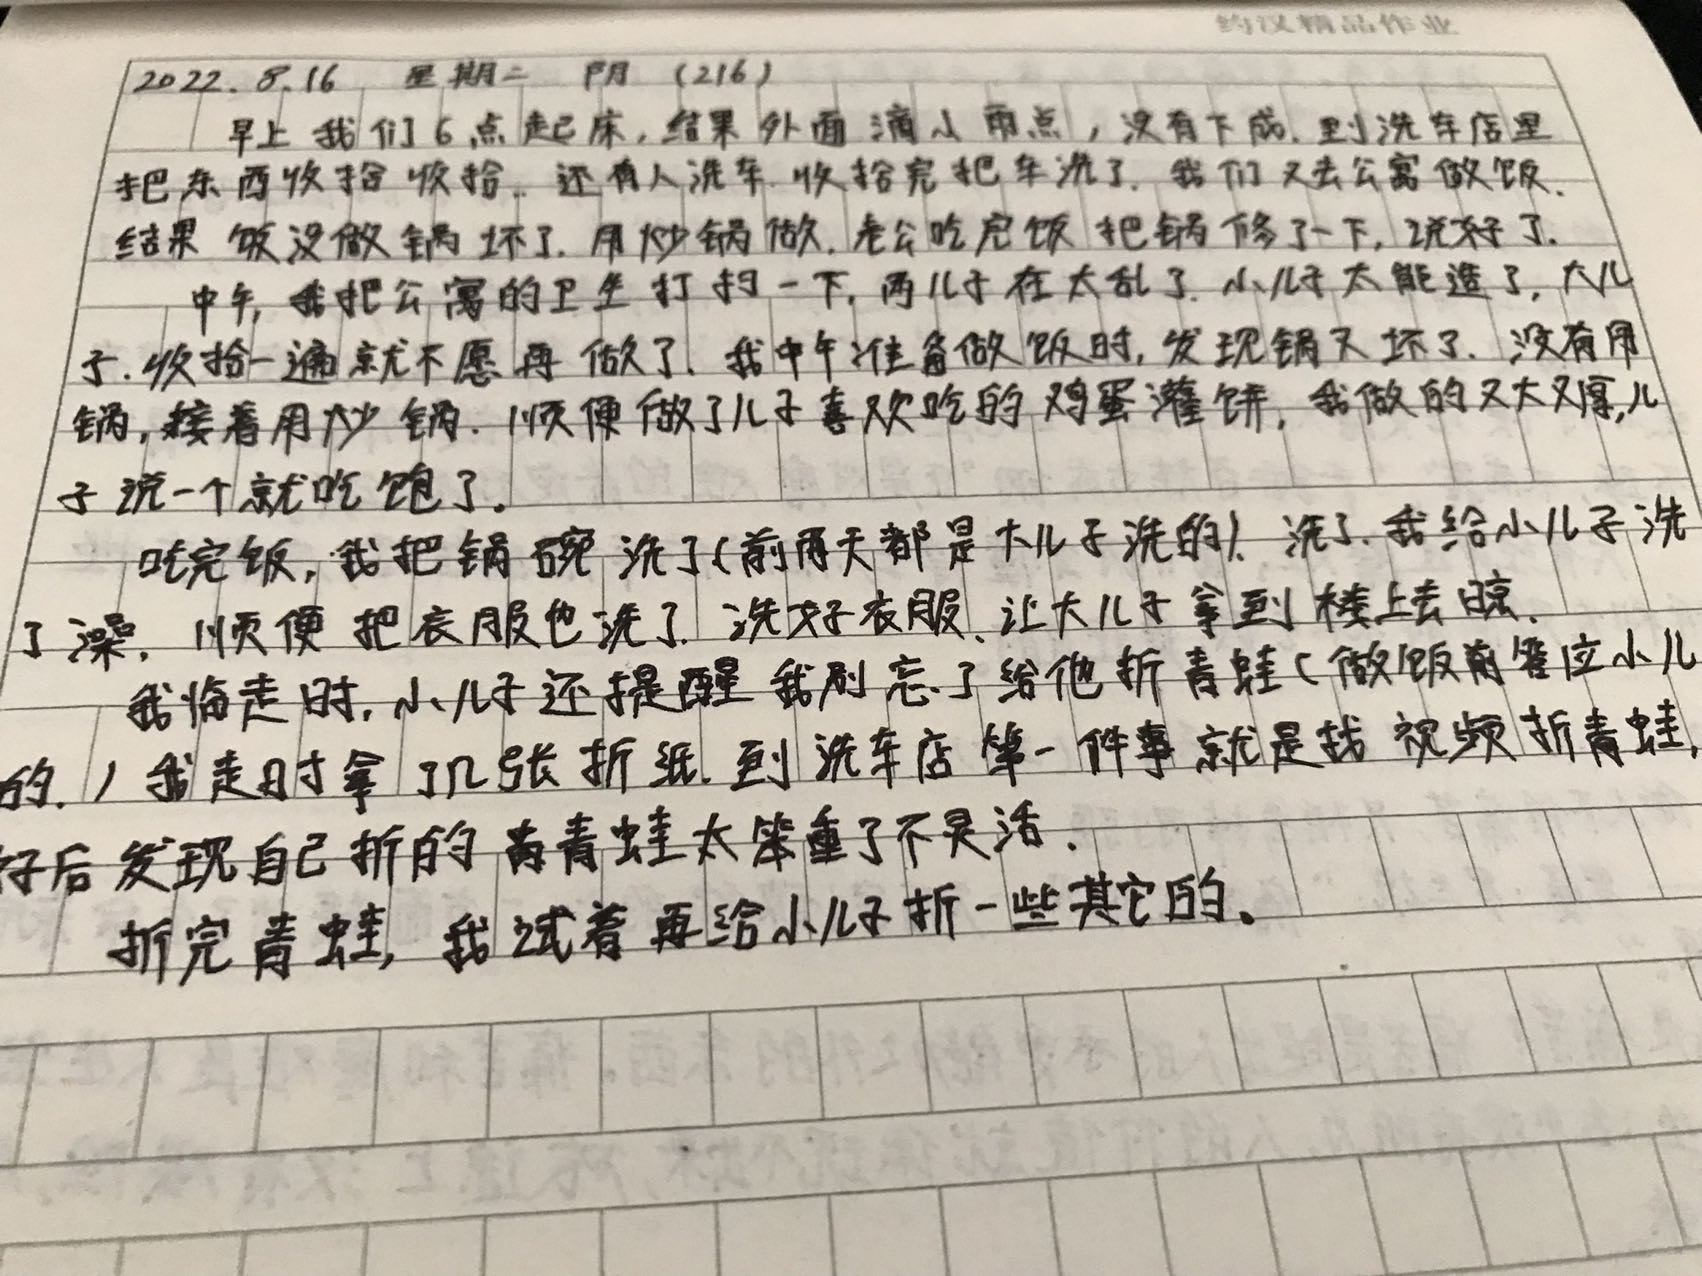 约汉精品作业
2022.8.16 星期二 阴 (216)
早上我们6点起床,结果外面滴小雨点,没有下成.到洗车店里
把东西收拾收拾.还有人洗车.收拾完把车洗了.我们又去公寓做饭.
结果饭没做锅坏了.用炒锅做.老公吃完饭把锅修了一下,说好了.
中午,我把公寓的卫生打扫一下,两儿子在太乱了.小儿子太能造了,大儿
子.收拾一遍就不愿再做了.我中午准备做饭时,发现锅又坏了.没有用
锅,接着用炒锅.顺便做了儿子喜欢吃的鸡蛋灌饼,我做的又大又厚,儿
子说一个就吃饱了.
吃完饭,我把锅碗洗了(前两天都是大儿子洗的).洗了.我给小儿子洗
了澡.顺便把衣服也洗了.洗好衣服、让大儿子拿到楼上去晾.
我临走时,小儿子还提醒我别忘了给他折青蛙(做饭前答应小儿
的.)我走时拿了几张折纸.到洗车店第一件事就是找视频折青蛙,
好后发现自己折的青蛙太笨重了不灵活.
折完青蛙,我试着再给小儿子折一些其它的。